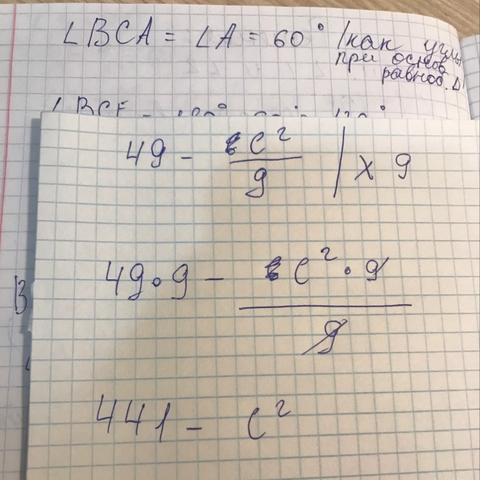 ∠BCA = ∠A = 60° /как углы
при основ
равноб. Δ
49 - c²/9 | x 9
49·9 - c²·9/9
441 - c²